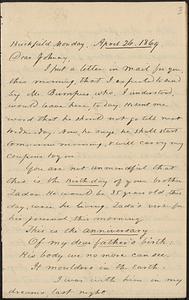 3
Buckfield, Monday, April 26, 1869
Dear Johnny,
I put a letter in mail for you
this morning, that I expected to send
by Mr. Bumpus who, I understood,
would leave here to-day. He sent me
word that he should not go till next
Now, he says he shall start
to-morrow morning, & will carry my
coupons to you.
You are not unmindful that
this is the birthday of your brother
Zadoc. He would be 35 years old this
day, were he living. Zada's visit for
his perusal this morning
This is the anniversary
Of my dear father's birth;
His body we no more can see.
It moulders in the earth.
I was with him in my
dreams last night